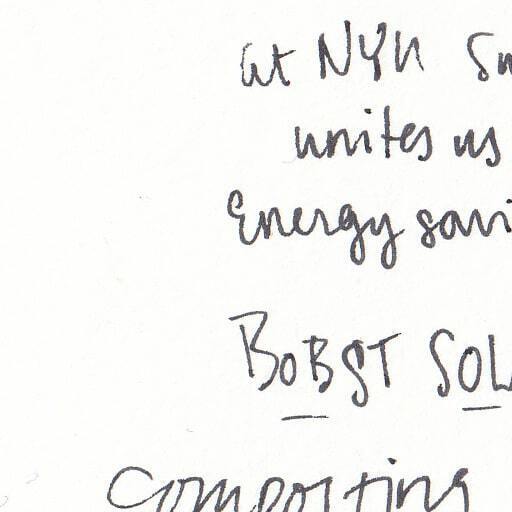 at NYU Su
unites us
Energy savi
BOBST SOL
Composting